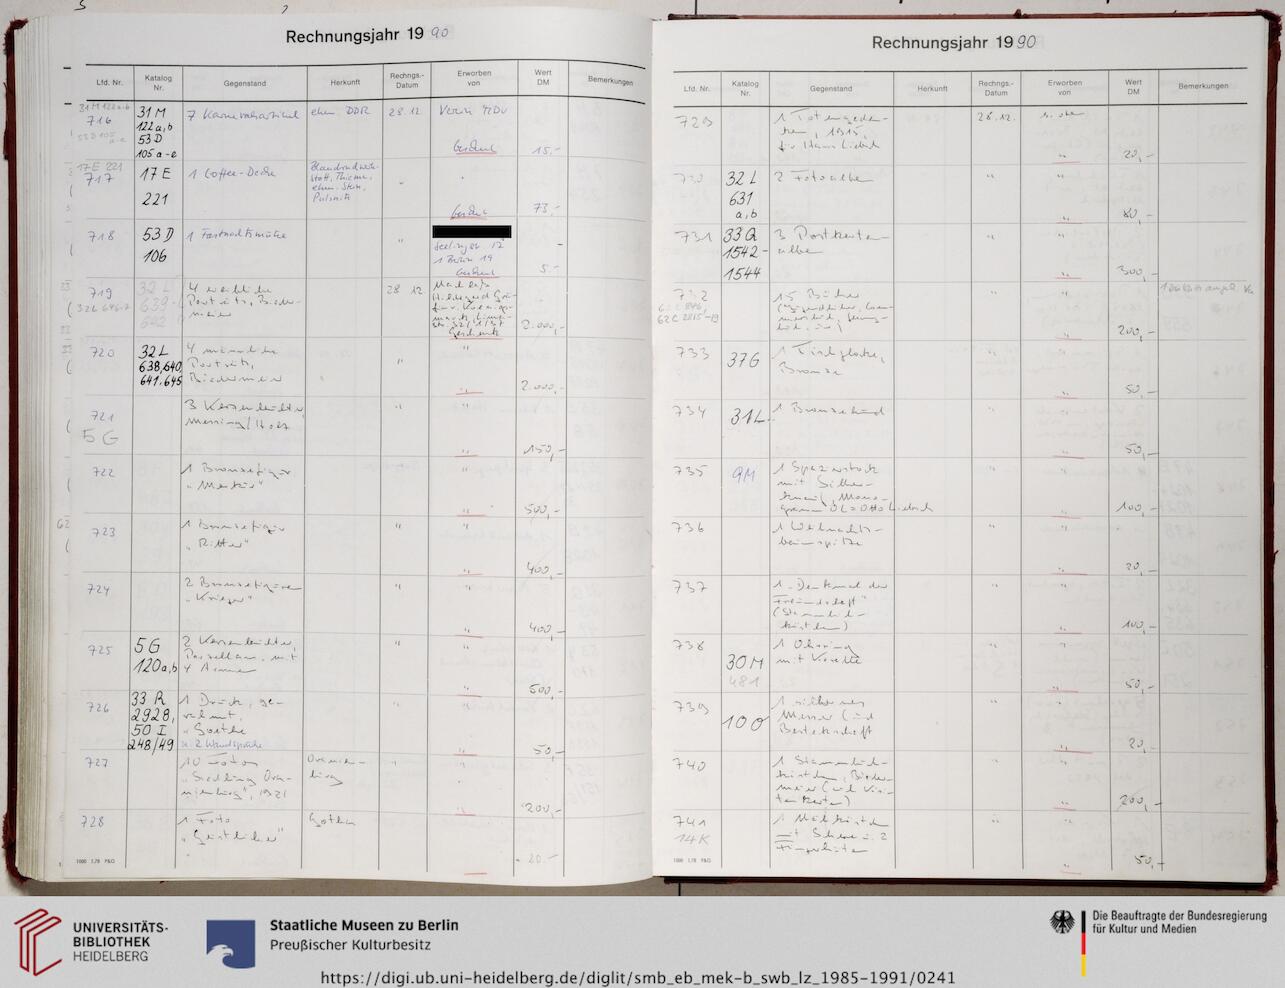 Rechnungsjahr 19 90
Lfd. Nr.
Katalog
Nr.
Gegenstand
Herkunft
Rechngs.-
Datum
Erworben
von
Wert
DM
Bemerkungen
31 M 122 a, b
716
53 D 105
a-e
31 M
122 a, b
53 D
105 a-e
7 Karnevalsartikel
ehem. DDR
28.12.
Geschenk
15,-
17 E 221
717
17 E
221
1 Coffee-Decke
"
Geschenk
73,-
718
53 D
106
1 Fastnachtsmütze
"
1 Berlin 19
Geschenk
5,-
719
32 L
639-
642
4 weibliche
Porträts, Bieder-
meier
28 12
Nachlaß
Geschenk
2.000,-
720
32 L
638, 640,
641, 645
4 männliche
Porträts,
Biedermeier
"
"
"
2.000,-
721
5 G
3 Kerzenleuchter,
Messing/Holz
"
"
"
150,-
722
1 Bronzefigur
"Merkur"
"
"
500,-
723
1 Bronzefigur
"Ritter"
"
"
"
400,-
724
2 Bronzefiguren
"Krieger"
"
"
"
400,-
725
5 G
120 a, b
2 Kerzenleuchter,
Porzellan, mit
4 Armen
"
"
"
500,-
726
33 R
2928,
50 I
248/49
1 Druck, ge-
rahmt,
"Goethe"
u. 2 Wandsprüche
"
"
"
50,-
727
10 Fotos
"Siedlung Ora-
nienburg", 1921
Oranien-
burg
"
"
"
200,-
728
1 Foto
"Geistlicher"
Gotha
20,-
1000 1.78 P&G
Rechnungsjahr 19 90
Lfd. Nr.
Katalog
Nr.
Gegenstand
Herkunft
Rechngs.-
Datum
Erworben
von
Wert
DM
Bemerkungen
729
1 Totengeden-
ken, 1915,
für Hans Liebich
28.12.
s. oben
"
20,-
730
32 L
631
a, b
2 Fotoalben
"
"
"
80,-
731
33 Q
1542-
1544
3 Postkarten-
alben
"
"
"
300,-
732
62 C 2815-19
15 Bücher
"
"
"
200,-
733
37 G
1 Tischglocke,
Bronze
"
"
"
50,-
734
31 L
1 Bronzehund
"
"
"
50,-
735
9 M
1 Spazierstock
mit Silber-
knauf, Mono-
gramm OL = Otto Liebich
"
"
"
100,-
736
1 Weihnachts-
baumspitze
"
"
"
20,-
737
1 "Denkmal der
Freundschaft"
(Stammbuch-
kästchen)
"
"
"
100,-
738
30 M
481
1 Ohrring
mit Koralle
"
"
"
50,-
739
10 O
1 silbernes
Messer (und
Besteckschaft
"
"
"
20,-
740
1 Stammbuch-
kästchen, Bieder-
meier (und Visi-
tenkarten)
"
"
"
200,-
741
14 K
1 Nähkästchen
mit Schere u. 2
Fingerhüten
"
"
"
50,-
1000 1.78 P&G
UNIVERSITÄTS-
BIBLIOTHEK
HEIDELBERG
Staatliche Museen zu Berlin
Preußischer Kulturbesitz
Die Beauftragte der Bundesregierung
für Kultur und Medien
https://digi.ub.uni-heidelberg.de/diglit/smb_eb_mek-b_swb_lz_1985-1991/0241